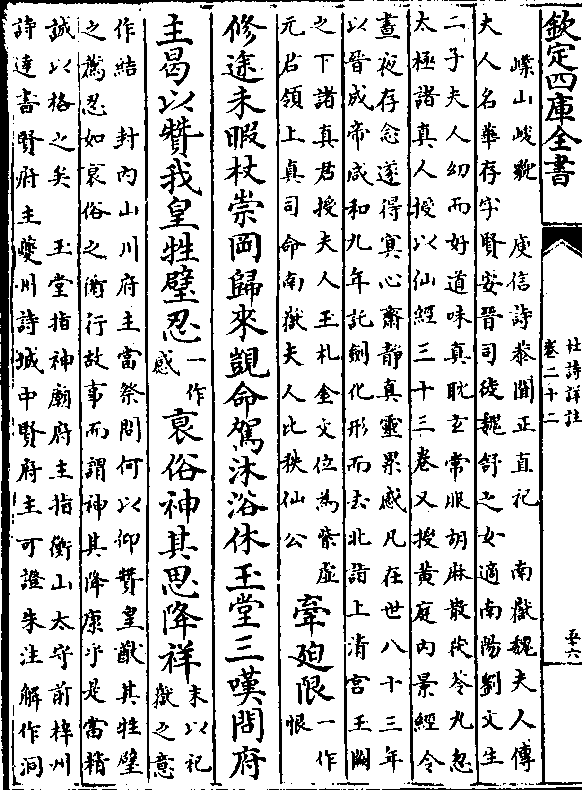 欽定四庫全書
杜詩詳註
卷二十二
嶫山峻貌　庾信詩恭聞正直祀　南嶽魏夫人傳
夫人名華存字賢安晉司徒魏舒之女適南陽劉文生
二子夫人幼而好道味真耽玄常服胡麻散茯苓丸忽
太極諸真人授以仙經三十三卷又授黃庭內景經令
晝夜存念遂得冥心齋靜真靈累感凡在世八十三年
以晉成帝咸和九年託劍化形而去北詣上清宮玉闕
之下諸真君授夫人玉札金文位為紫虛
元君領上真司命南嶽夫人比秩仙公　牽迫限一作恨
修途未暇杖崇岡歸來覬命駕沐浴休玉堂三嘆問府
主曷以贊我皇牲璧忍一作感衰俗神其思降祥末以祀嶽之意
作結　封內山川府主當祭問何以仰贊皇猷其牲璧
之薦忍如衰俗之術行故事而謂神其降康乎是當精
誠以格之矣　玉堂指神廟府主指衡山太守前梓州
詩達書賢府主夔州詩城中賢府主可證朱注解作洞